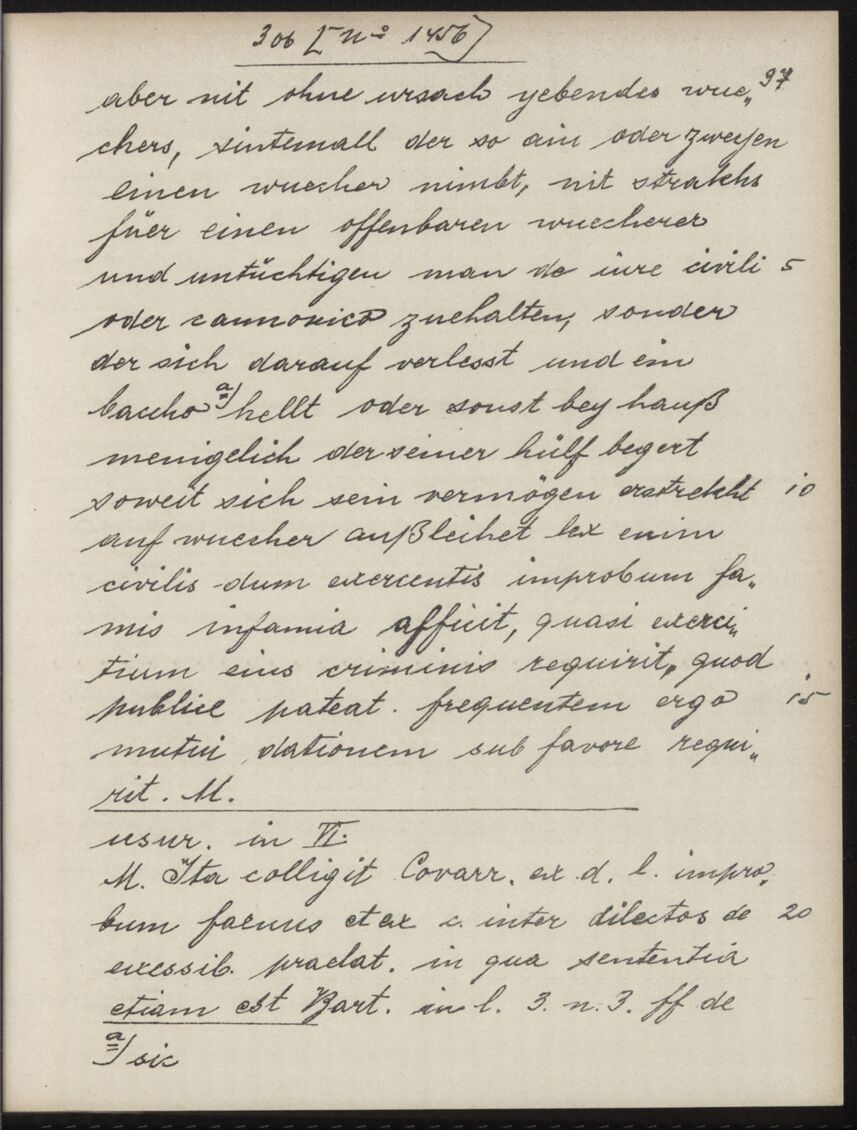 306 [Nº 1456]
97
aber nit ohne ursach gebendes wue„
chers, sintemall der so ain oder zweyen
einen wuecher nimbt, nit strakhs
füer einen offenbaren wuecherer
und untüchtigen man de iure civili 5
oder cannonico zuehalten, sonder
der sich darauf verlesst und ein
baccho a) hellt oder sonst bey hauß
menigelich der seiner hülf begert
soweit sich sein vermögen erstrekht 10
auf wuecher außleihet lex enim
civilis dum exercentis improbum fa„
mis infamia afficit, quasi exerci„
tium eius criminis requirit, quod
publice pateat. frequentem ergo 15
mutui dationem sub favore requi„
rit. M.
usur. in VI.
M. Ita colligit Covarr. ex d. l. impro„
bum faenus et ex c. inter dilectos de 20
excessib. praelat. in qua sententia
etiam est Bart. in l. 3. n. 3. ff de
a) sic